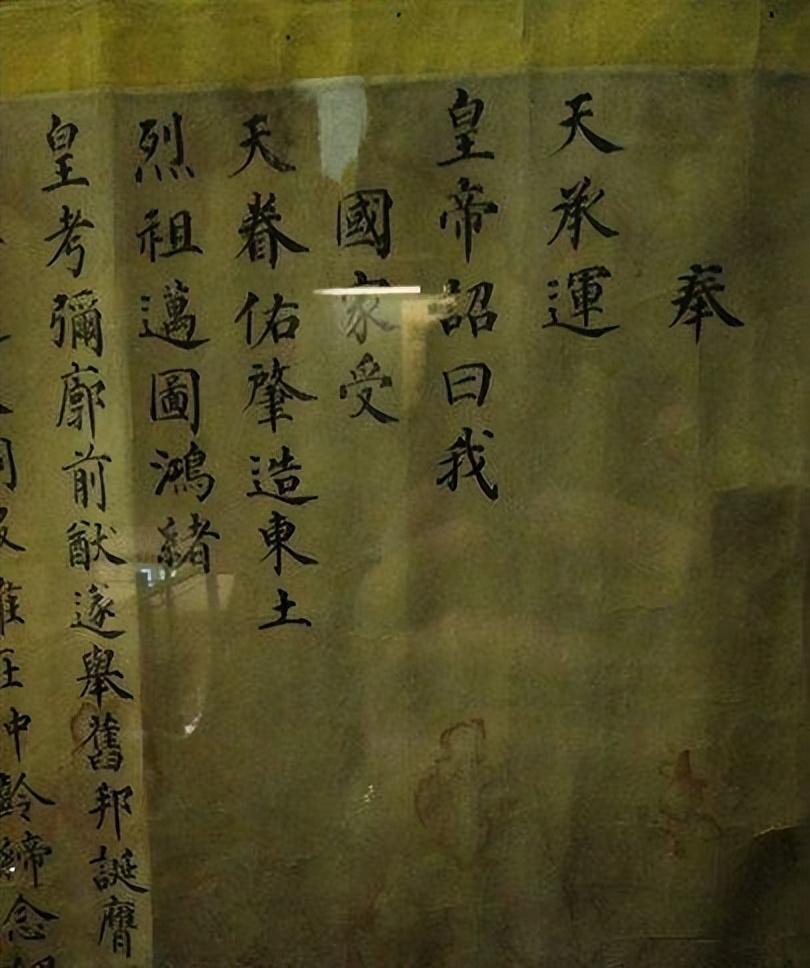 奉
天承運
皇帝詔曰我
國家受
天眷佑肇造東土
烈祖邁圖鴻緒
皇考彌廓前猷遂舉舊邦誕膺
齡締念